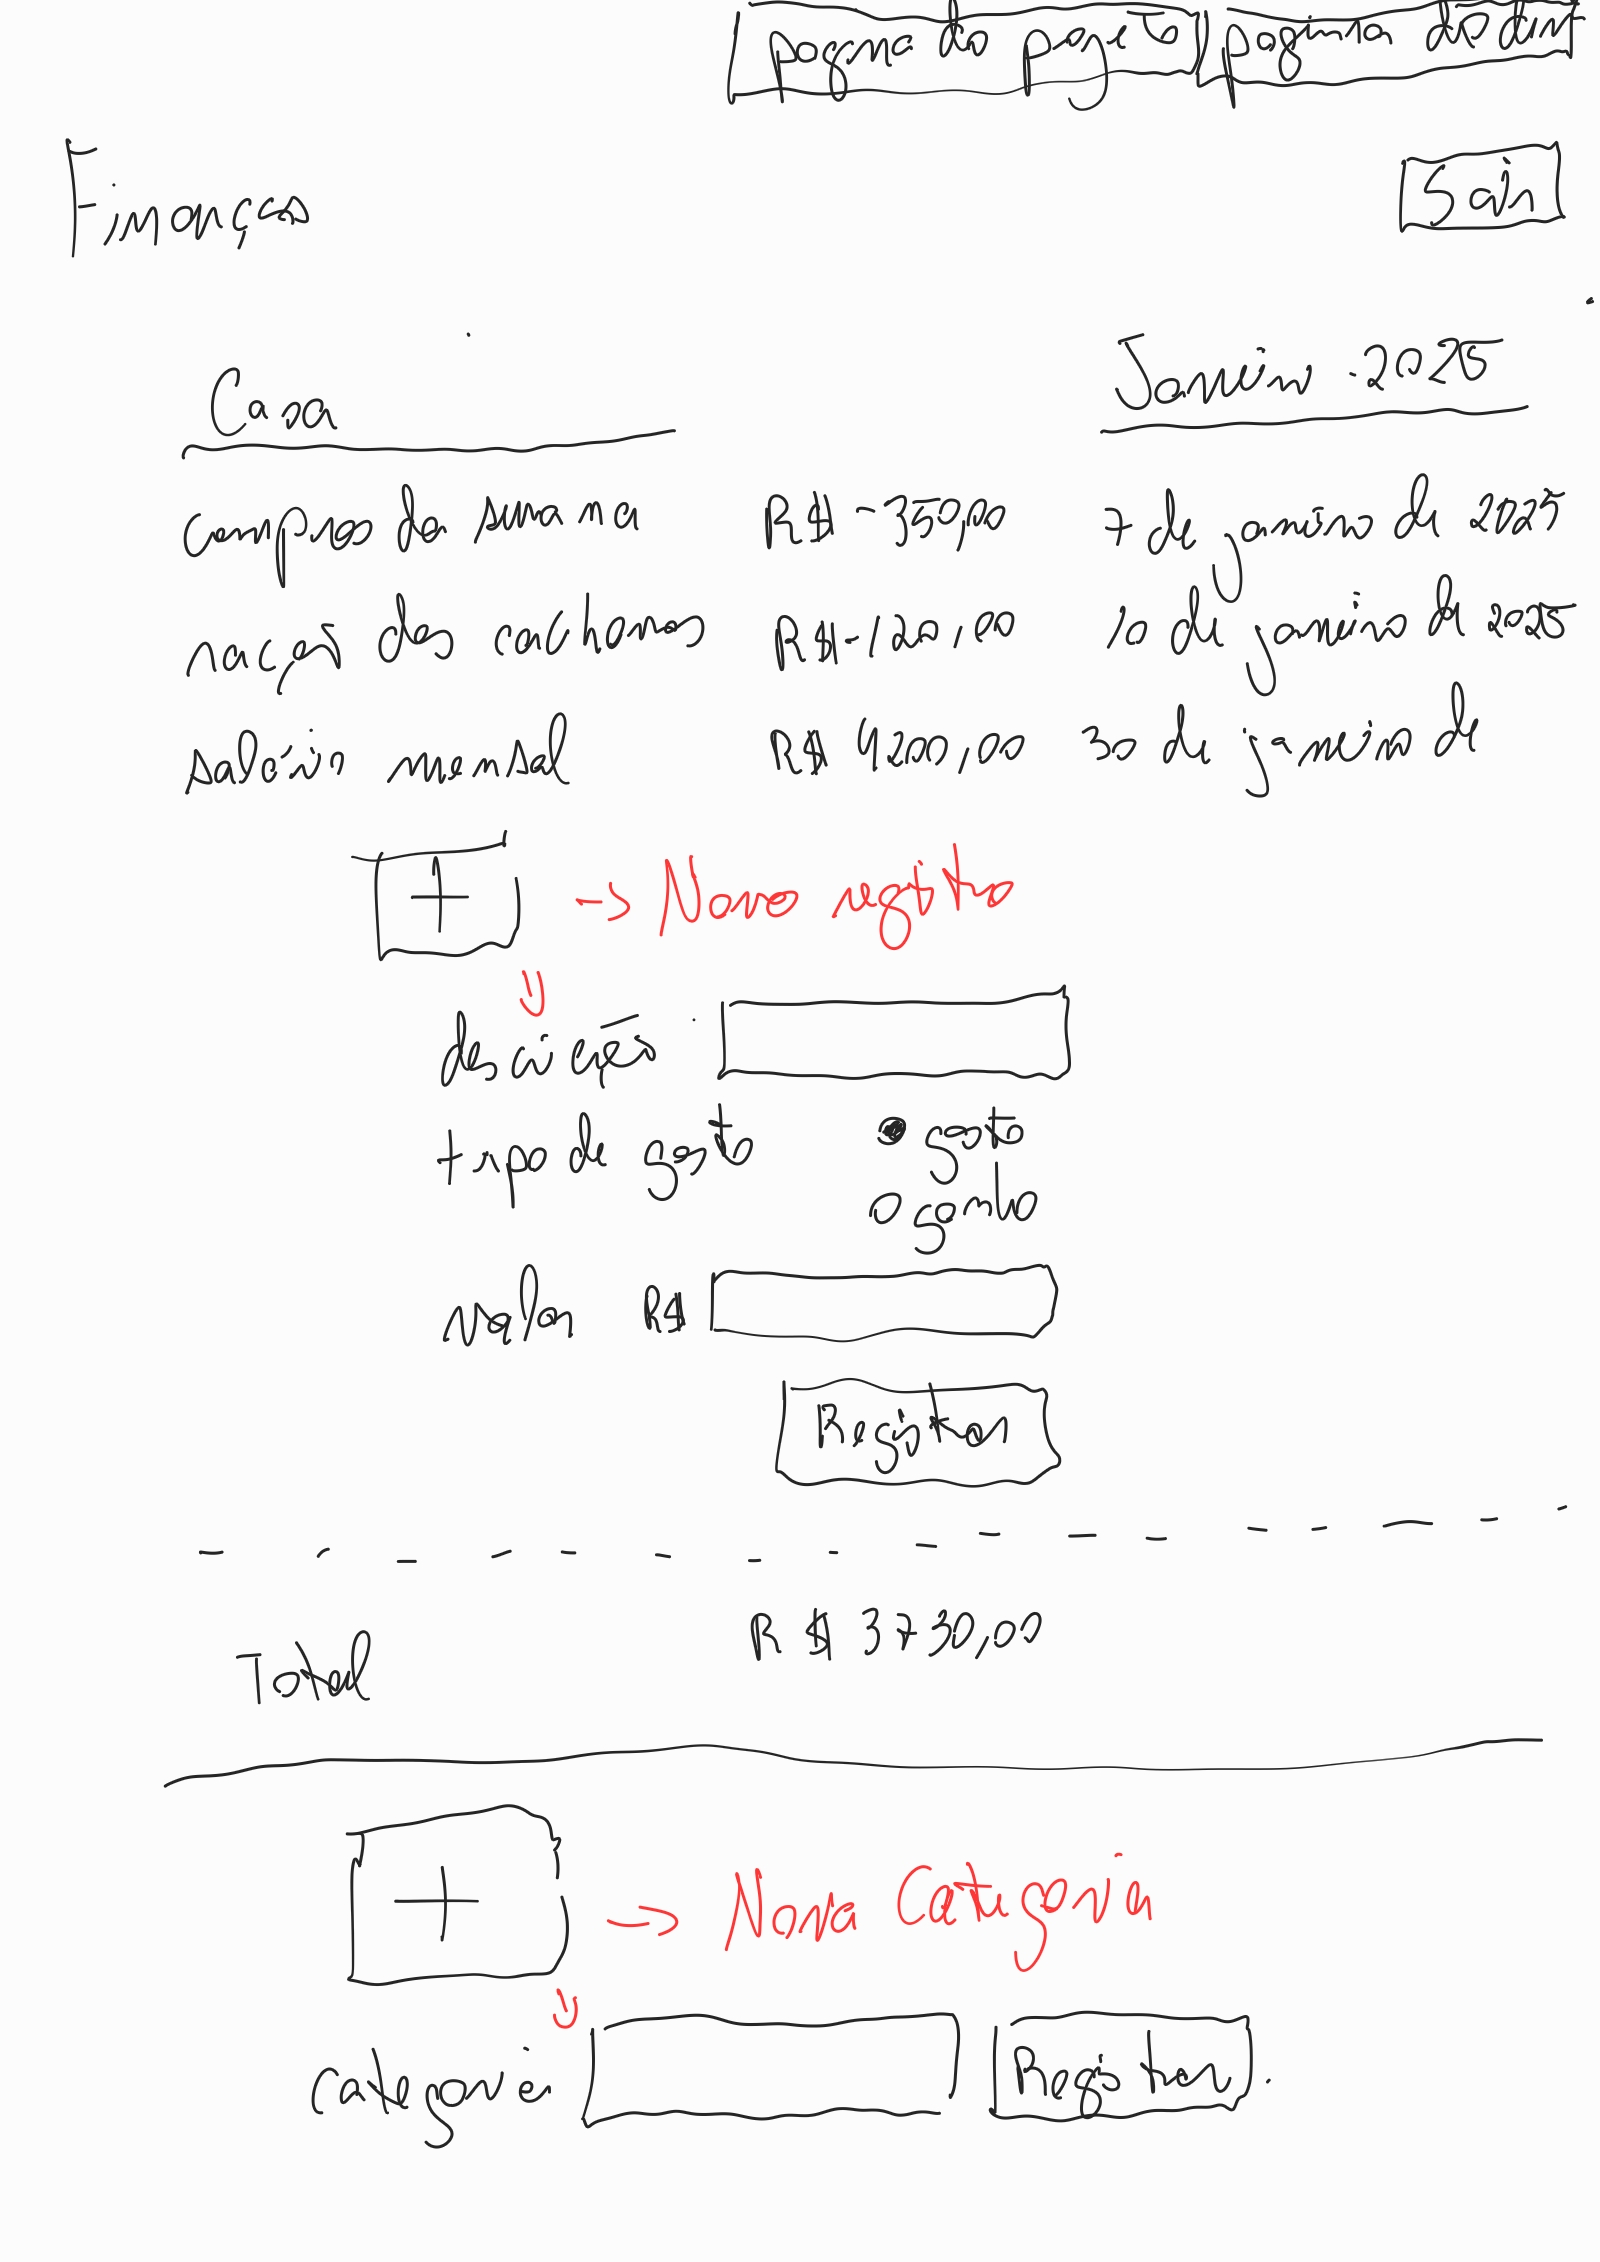 pagina do pagina do dim
Finanças
Sair
Casa
Janeiro . 2025
compras da semana R$ -350,00 7 de janeiro de 2025
ração dos cachorros R$ -120,00 10 de janeiro de 2025
salário mensal R$ 4200,00 30 de janeiro de
+ → Novo registro
descrição
tipo de gasto • gasto
o ganho
valor R$
Registrar
Total R$ 3730,00
+ → Nova Categoria
categoria Registrar